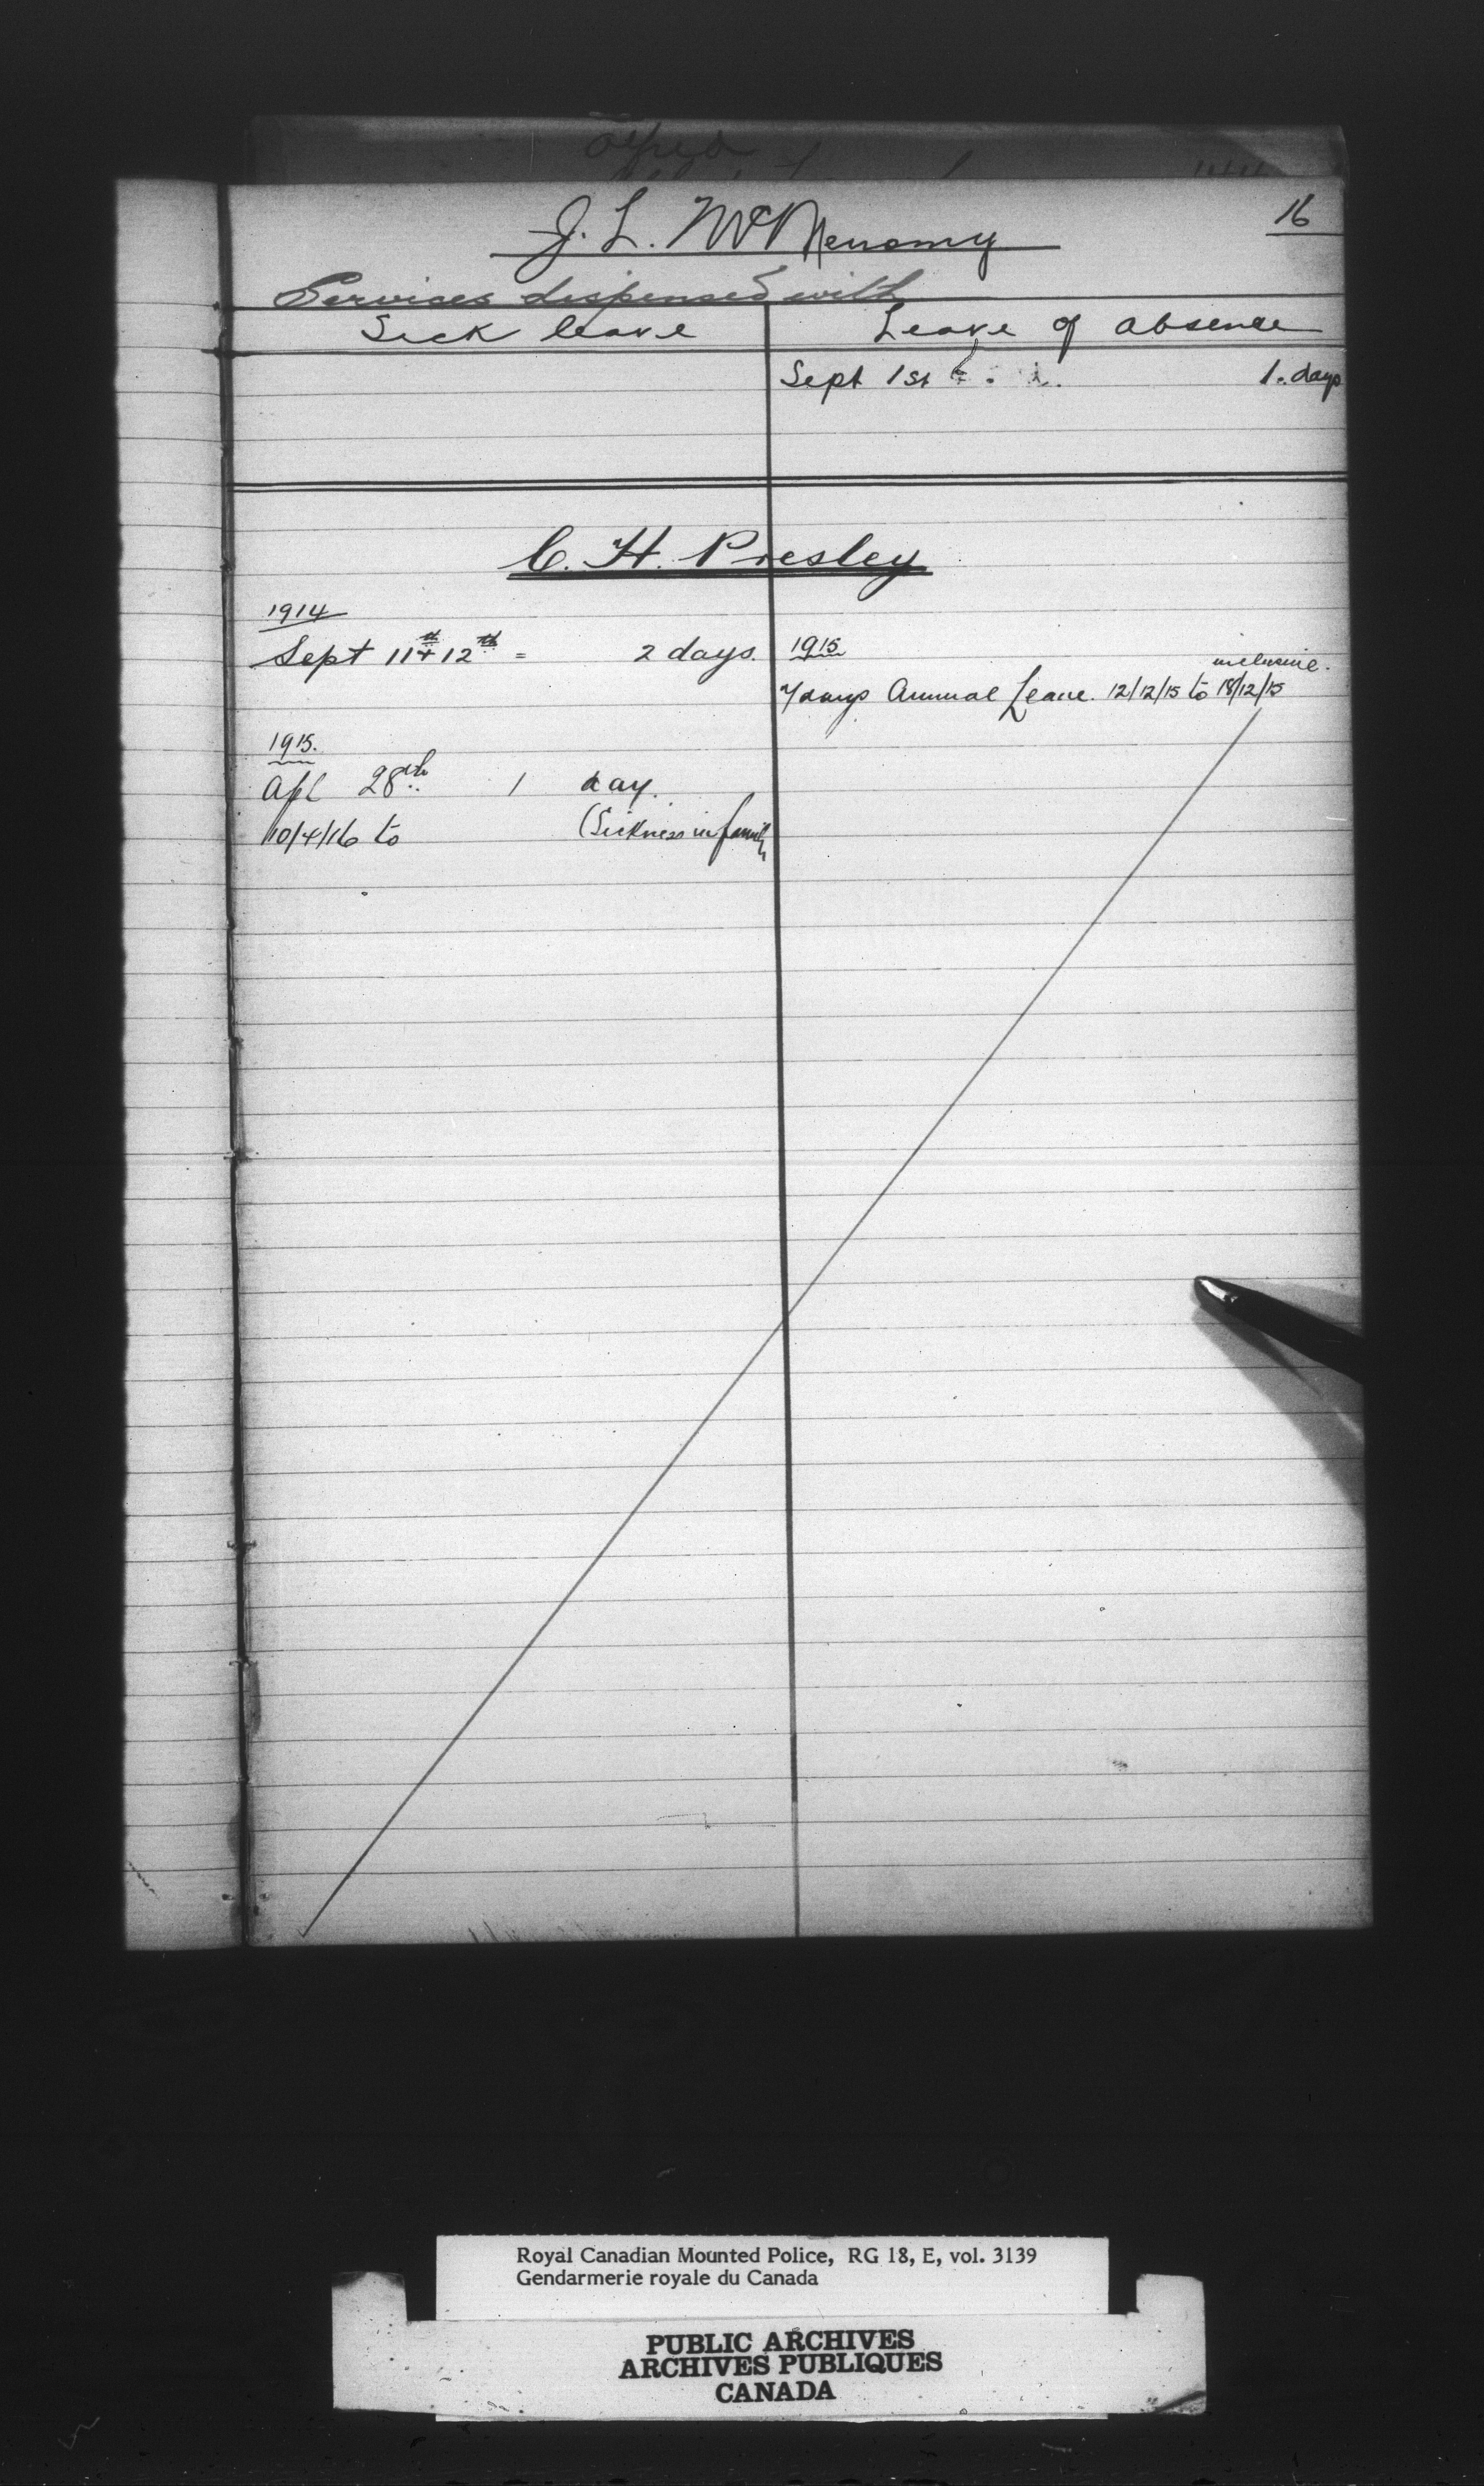 Alfred
16
J. L. McMenomy
Services dispensed with
Sick leave
Leave of absence
Sept 1st 1. days
C. H. Presley
1914
Sept 11th + 12th = 2 days.
1915
7 days Annual Leave. 12/12/15 to 18/12/15 inclusive.
1915.
Apl 28th 1 day.
10/4/16 to (Sickness in family
Royal Canadian Mounted Police, RG 18, E, vol. 3139
Gendarmerie royale du Canada
PUBLIC ARCHIVES
ARCHIVES PUBLIQUES
CANADA